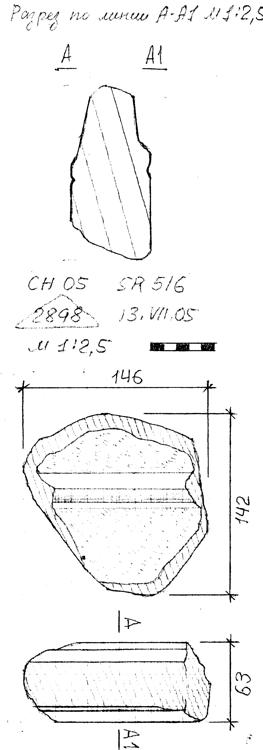 Разрез по линии А-А1 М1:2,5
А А1
CH 05 SR 516
2898 13.VII.05
М 1:2,5
146
142
А
63
А1